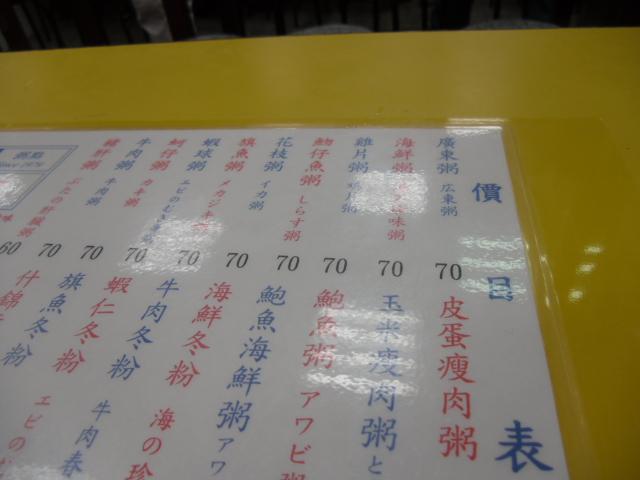 價目表
廣東粥 広東粥 70
海鮮粥 70
雞片粥 70
魩仔魚粥 しらす粥 70
花枝粥 イカ粥 70
旗魚粥 メカジキ 70
蝦球粥 70
蚵仔粥 カキ粥 70
牛肉粥 牛肉粥 70
豬肝粥 ぶたの肝臓粥 60
皮蛋瘦肉粥
玉米瘦肉粥 と
鮑魚粥 アワビ粥
鮑魚海鮮粥 アワ
海鮮冬粉 海の珍
牛肉冬粉 牛肉春
蝦仁冬粉 エビの
旗魚冬粉
什錦